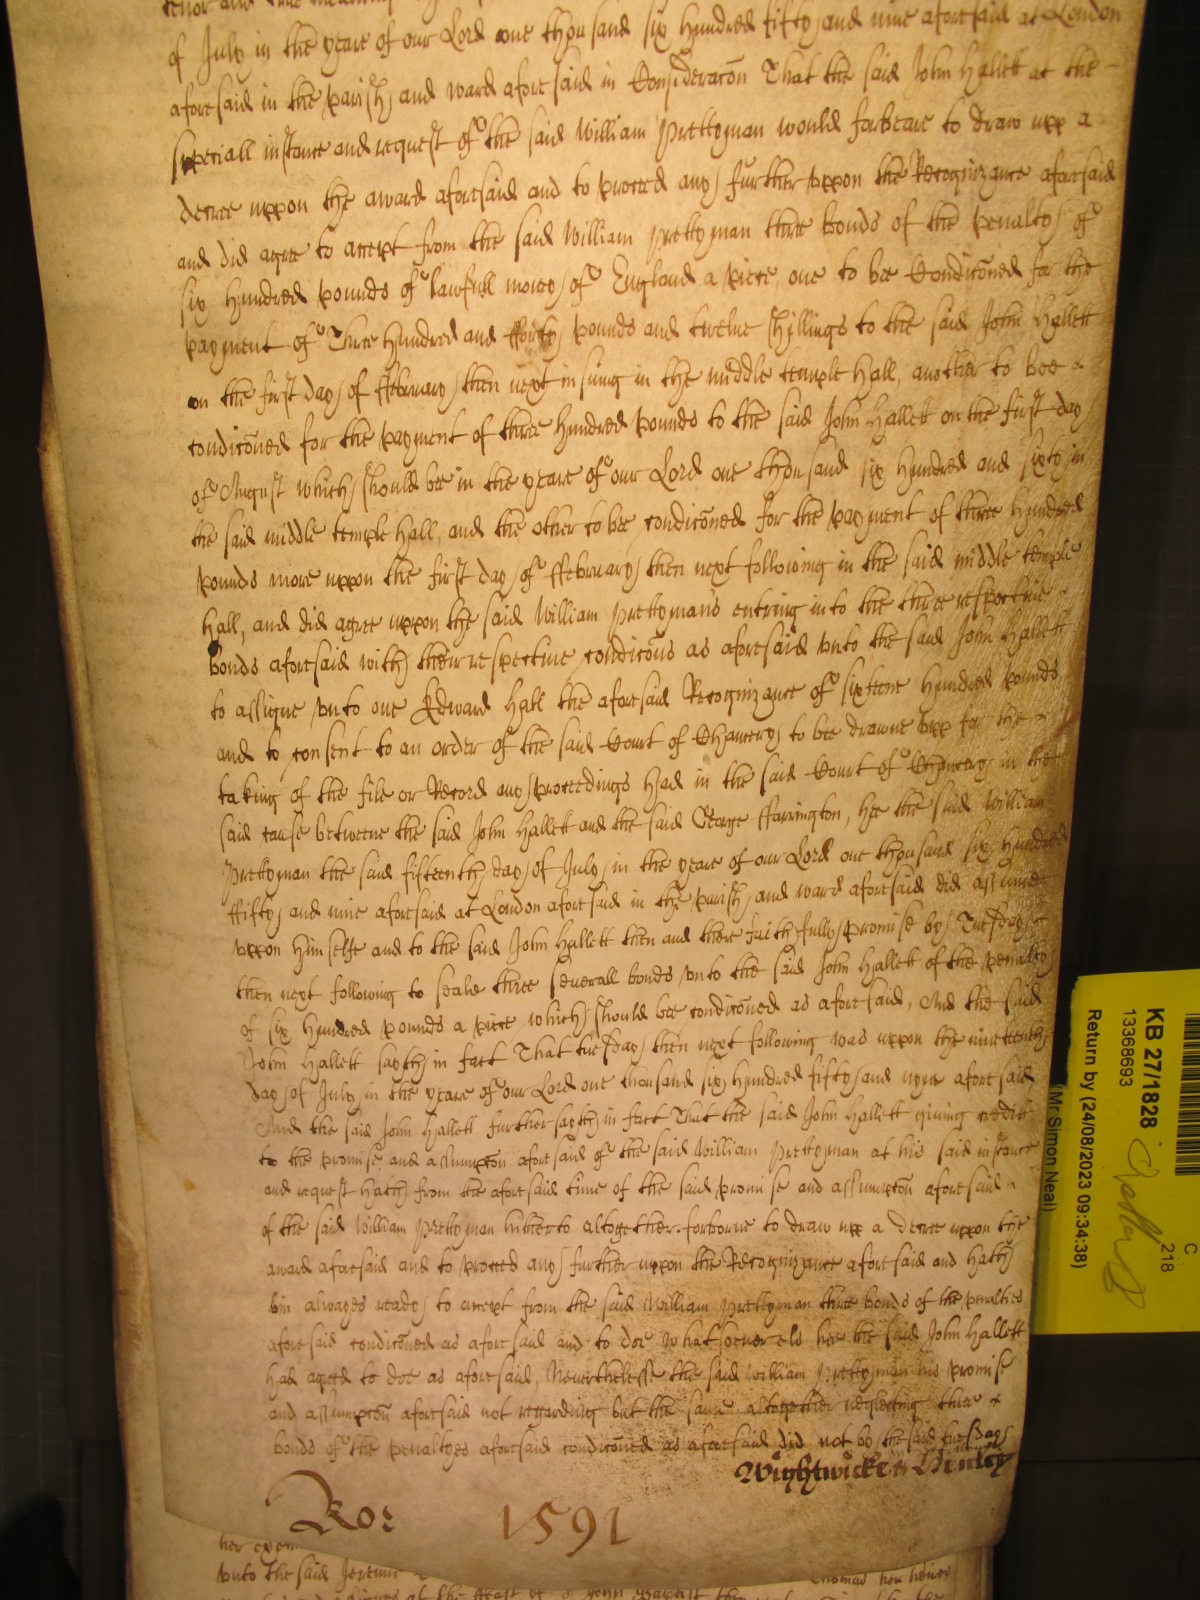 tenor and true meaning
of July in the yeare of our Lord one thousand six hundred fifty and nine aforesaid at London
aforesaid in the parish and ward aforesaid in Consideracõn That the said John Hallett at the
speciall instance and request of the said William Prettyman would forbeare to draw upp a
decree uppon the award aforesaid and to proceed any further uppon the Recognizance aforesaid
and did agree to accept from the said William Prettyman three bonds of the penalty of
six hundred pounds of lawfull money of England a piece, one to bee Condicõned for the
payment of Three hundred and fforty pounds and twelve shillings to the said John Hallett
on the first day of ffebruary then next insuing in the middle temple Hall, another to bee
condicõned for the payment of three hundred pounds to the said John Hallett on the first day
of August which should bee in the yeare of our Lord one thousand six hundred and sixty in
the said middle temple Hall, and the other to bee condicõned for the payment of three hundred
pounds more uppon the first day of ffebruary then next following in the said middle temple
Hall, and did agree uppon the said William Prettymans entring into the three respective
bonds aforesaid with their respective condicõns as aforesaid vnto the said John Hallett
to assigne vnto one Edward Hall the aforesaid Recognizance of sixteene hundred pounds
and to consent to an order of the said Court of Chancery to bee drawne vpp for the
taking of the file or Record any proceedings had in the said Court of Chancery in the
said cause betweene the said John Hallett and the said George ffarrington, hee the said William
Prettyman the said fifteenth day of July in the yeare of our Lord one thousand six hundred
ffifty and nine aforesaid at London aforesaid in the parish and ward aforesaid did assume
uppon himselfe and to the said John Hallett then and there faithfully promise by Tuesday
then next following to seale three severall bonds vnto the said John Hallett of the penalty
of six hundred pounds a piece which should bee condicõned as aforesaid, And the said
John Hallett sayth in fact That tuesday then next following was uppon the nineteenth
day of July in the yeare of our Lord one thousand six hundred fifty and nyne aforesaid
And the said John Hallett further sayth in fact That the said John Hallett giving creditt
to the promise and assumpcõn aforesaid of the said William Prettyman at his said instance
and request hath from the aforesaid time of the said promise and assumpcõn aforesaid
of the said William Prettyman hitherto altogether forborne to draw upp a decree uppon the
award aforesaid and to proceed any further uppon the Recognizance aforesaid and hath
bin alwayes ready to accept from the said William Prettyman three bonds of the penalties
aforesaid condicõned as aforesaid and to doe whatsoever els hee the said John Hallett
had agreed to doe as aforesaid, Neverthelesse the said William Prettyman his promise
and assumpcõn aforesaid not regarding but the same altogether neglecting three
bonds of the penaltyes aforesaid condicõned as aforesaid did not by the said tuesday
Wightwicke & Henley
Ro: 1591
vnto the said Jeremie
Thomas her heires
at the feast of St John Baptist then
KB 27/1828
13368693
Return by (24/08/2023 09:34:38)
(Mr Simon Neal)
C
218